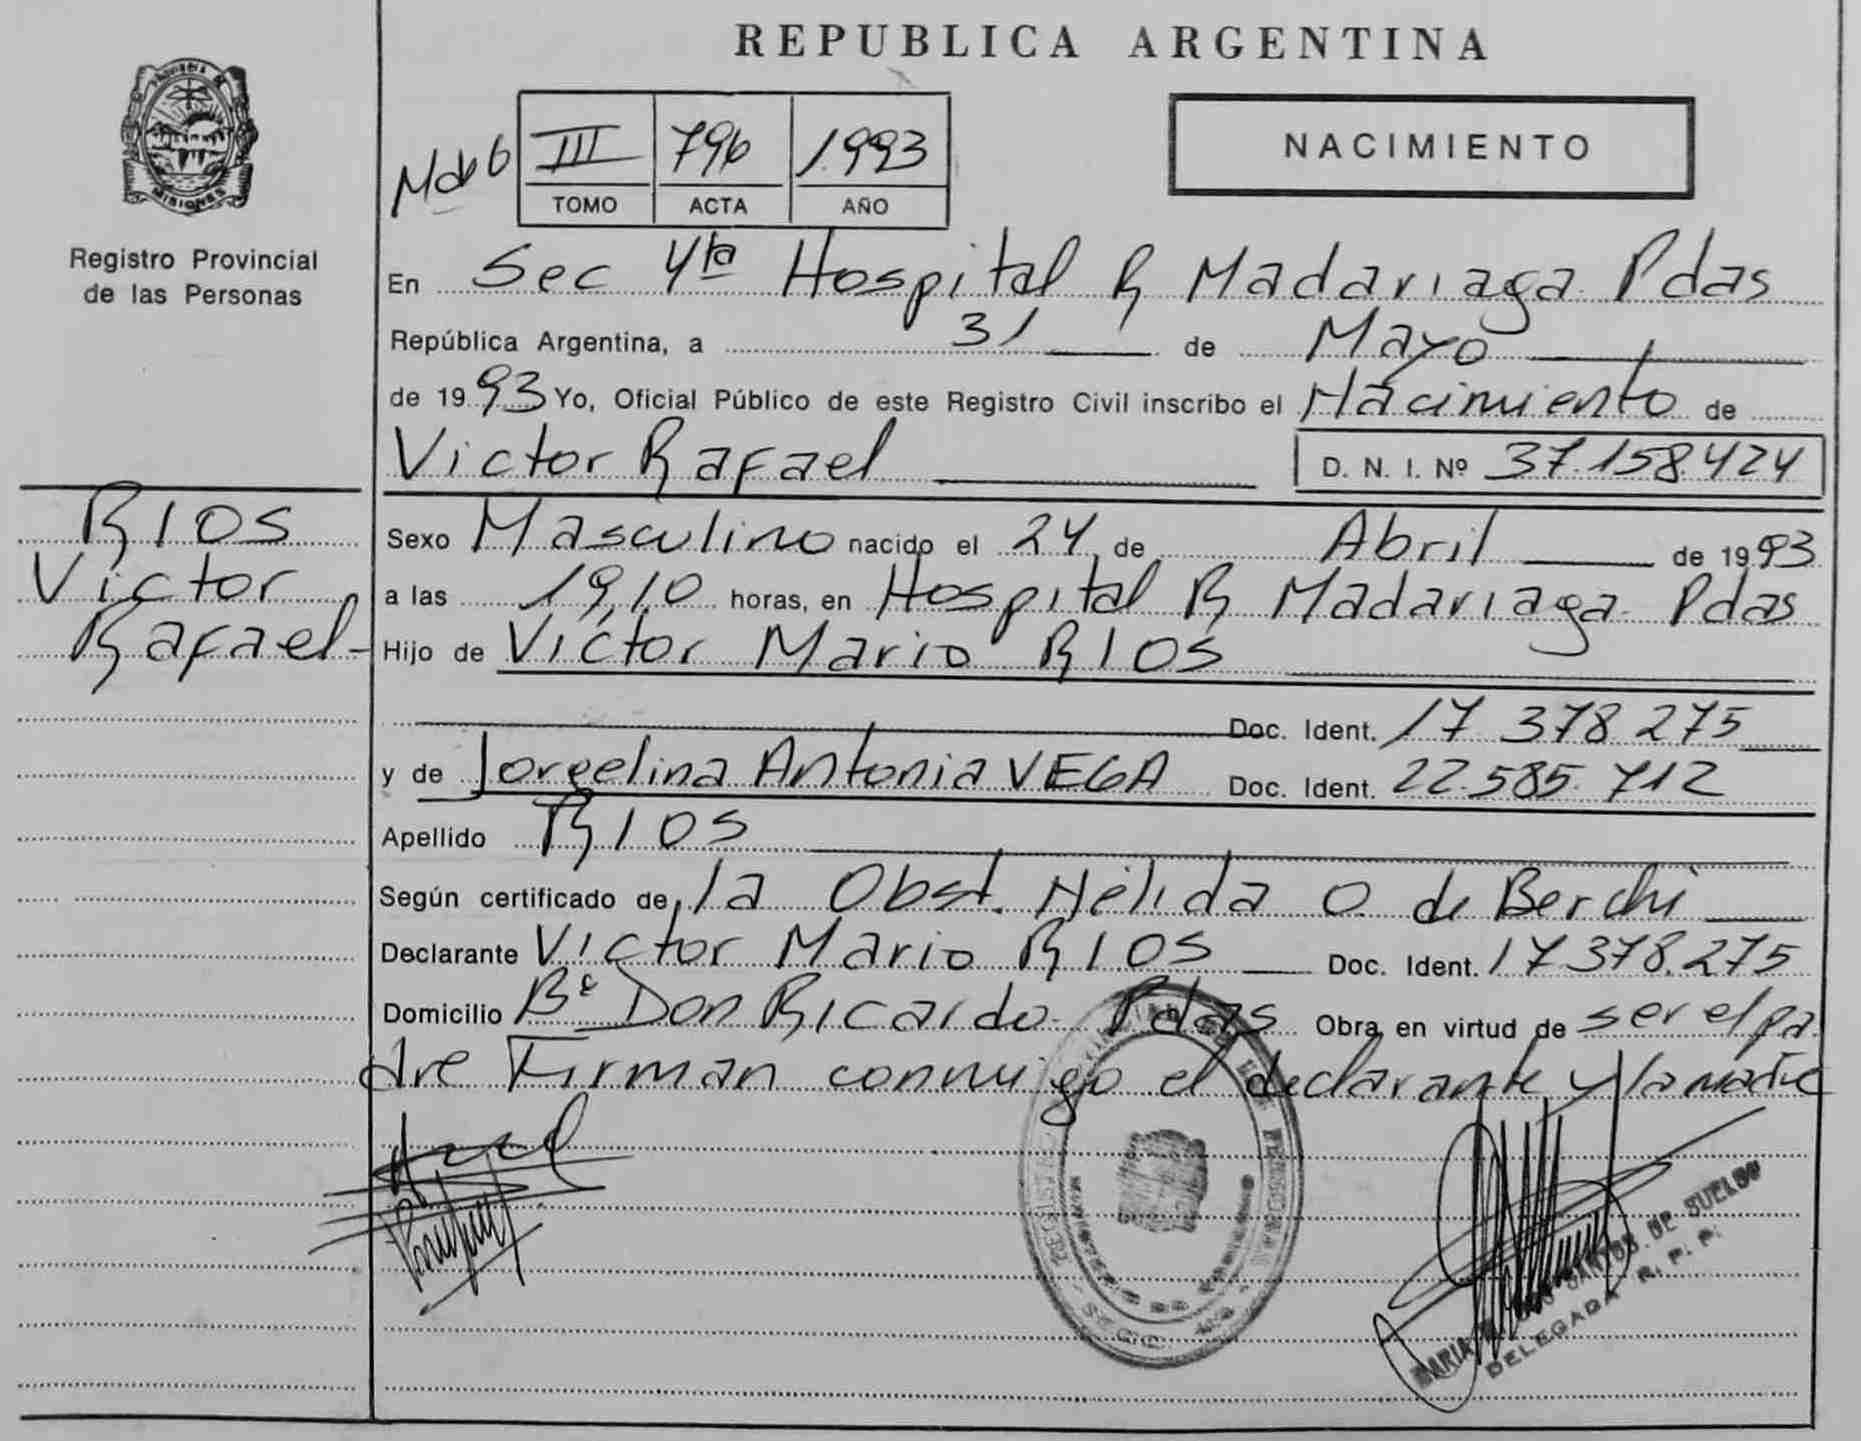 REPUBLICA ARGENTINA
PROVINCIA DE
MISIONES
Registro Provincial
de las Personas
NACIMIENTO
III 796 1.993
TOMO ACTA AÑO
En Sec 4ta Hospital R Madariaga Pdas
República Argentina, a 31 de Mayo
de 1993 Yo, Oficial Público de este Registro Civil inscribo el Nacimiento de
Victor Rafael D. N. I. Nº 37.158.424
RIOS
Victor
Rafael-
Sexo Masculino nacido el 24 de Abril de 1993
a las 19,10 horas, en Hospital R Madariaga Pdas
Hijo de Victor Mario RIOS
Doc. Ident. 17 378 275
y de Jorgelina Antonia VEGA Doc. Ident. 22.585.712
Apellido RIOS
Según certificado de la Obst. Nélida O. de Berchi
Declarante Victor Mario RIOS Doc. Ident. 17378.275
Domicilio Bº Don Ricardo Pdas Obra en virtud de ser el pa
dre Firman conmigo el declarante y la madre
MARIA SANTOS DE SUELDO
DELEGADA R. P. P.